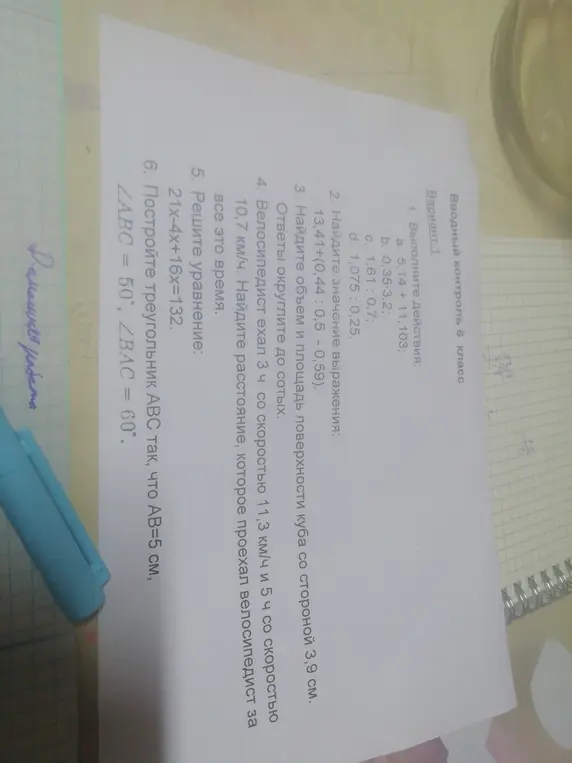 Вводный контроль 6 класс
Вариант 1
1. Выполните действия:
a. 5,14 + 11,103;
b. 0,35·3,2;
c. 1,61 : 0,7;
d. 1,075 : 0,25.
2. Найдите значение выражения:
13,41+(0,44 : 0,5 - 0,59).
3. Найдите объем и площадь поверхности куба со стороной 3,9 см.
Ответы округлите до сотых.
4. Велосипедист ехал 3 ч со скоростью 11,3 км/ч и 5 ч со скоростью
10,7 км/ч. Найдите расстояние, которое проехал велосипедист за
все это время.
5. Решите уравнение:
21x-4x+16x=132.
6. Постройте треугольник ABC так, что AB=5 см,
∠ABC = 50°, ∠BAC = 60°.
Домашняя работа